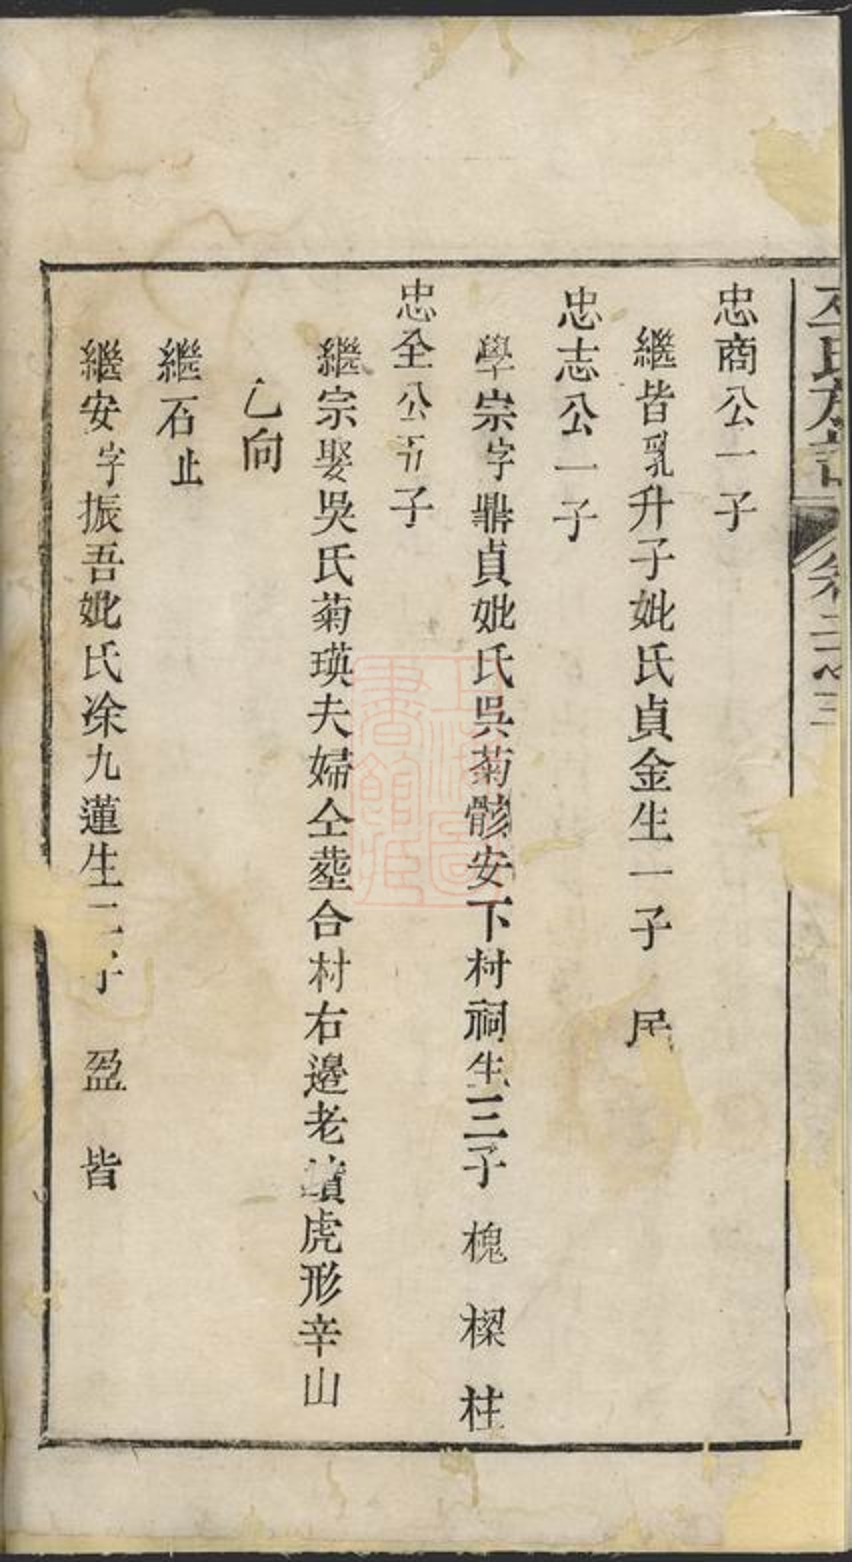 氏族譜 卷二之三
忠商公一子
繼皆乳升子妣氏貞金生一子 民
忠志公一子
學崇字鼎貞妣氏吳菊骸安下村祠生三子 槐 樑 柱
忠全公五子
繼宗娶吳氏菊瑛夫婦仝塟合村右邊老墳虎形辛山
乙向
繼石止
繼安字振吾妣氏涂九蓮生二子 盈 皆